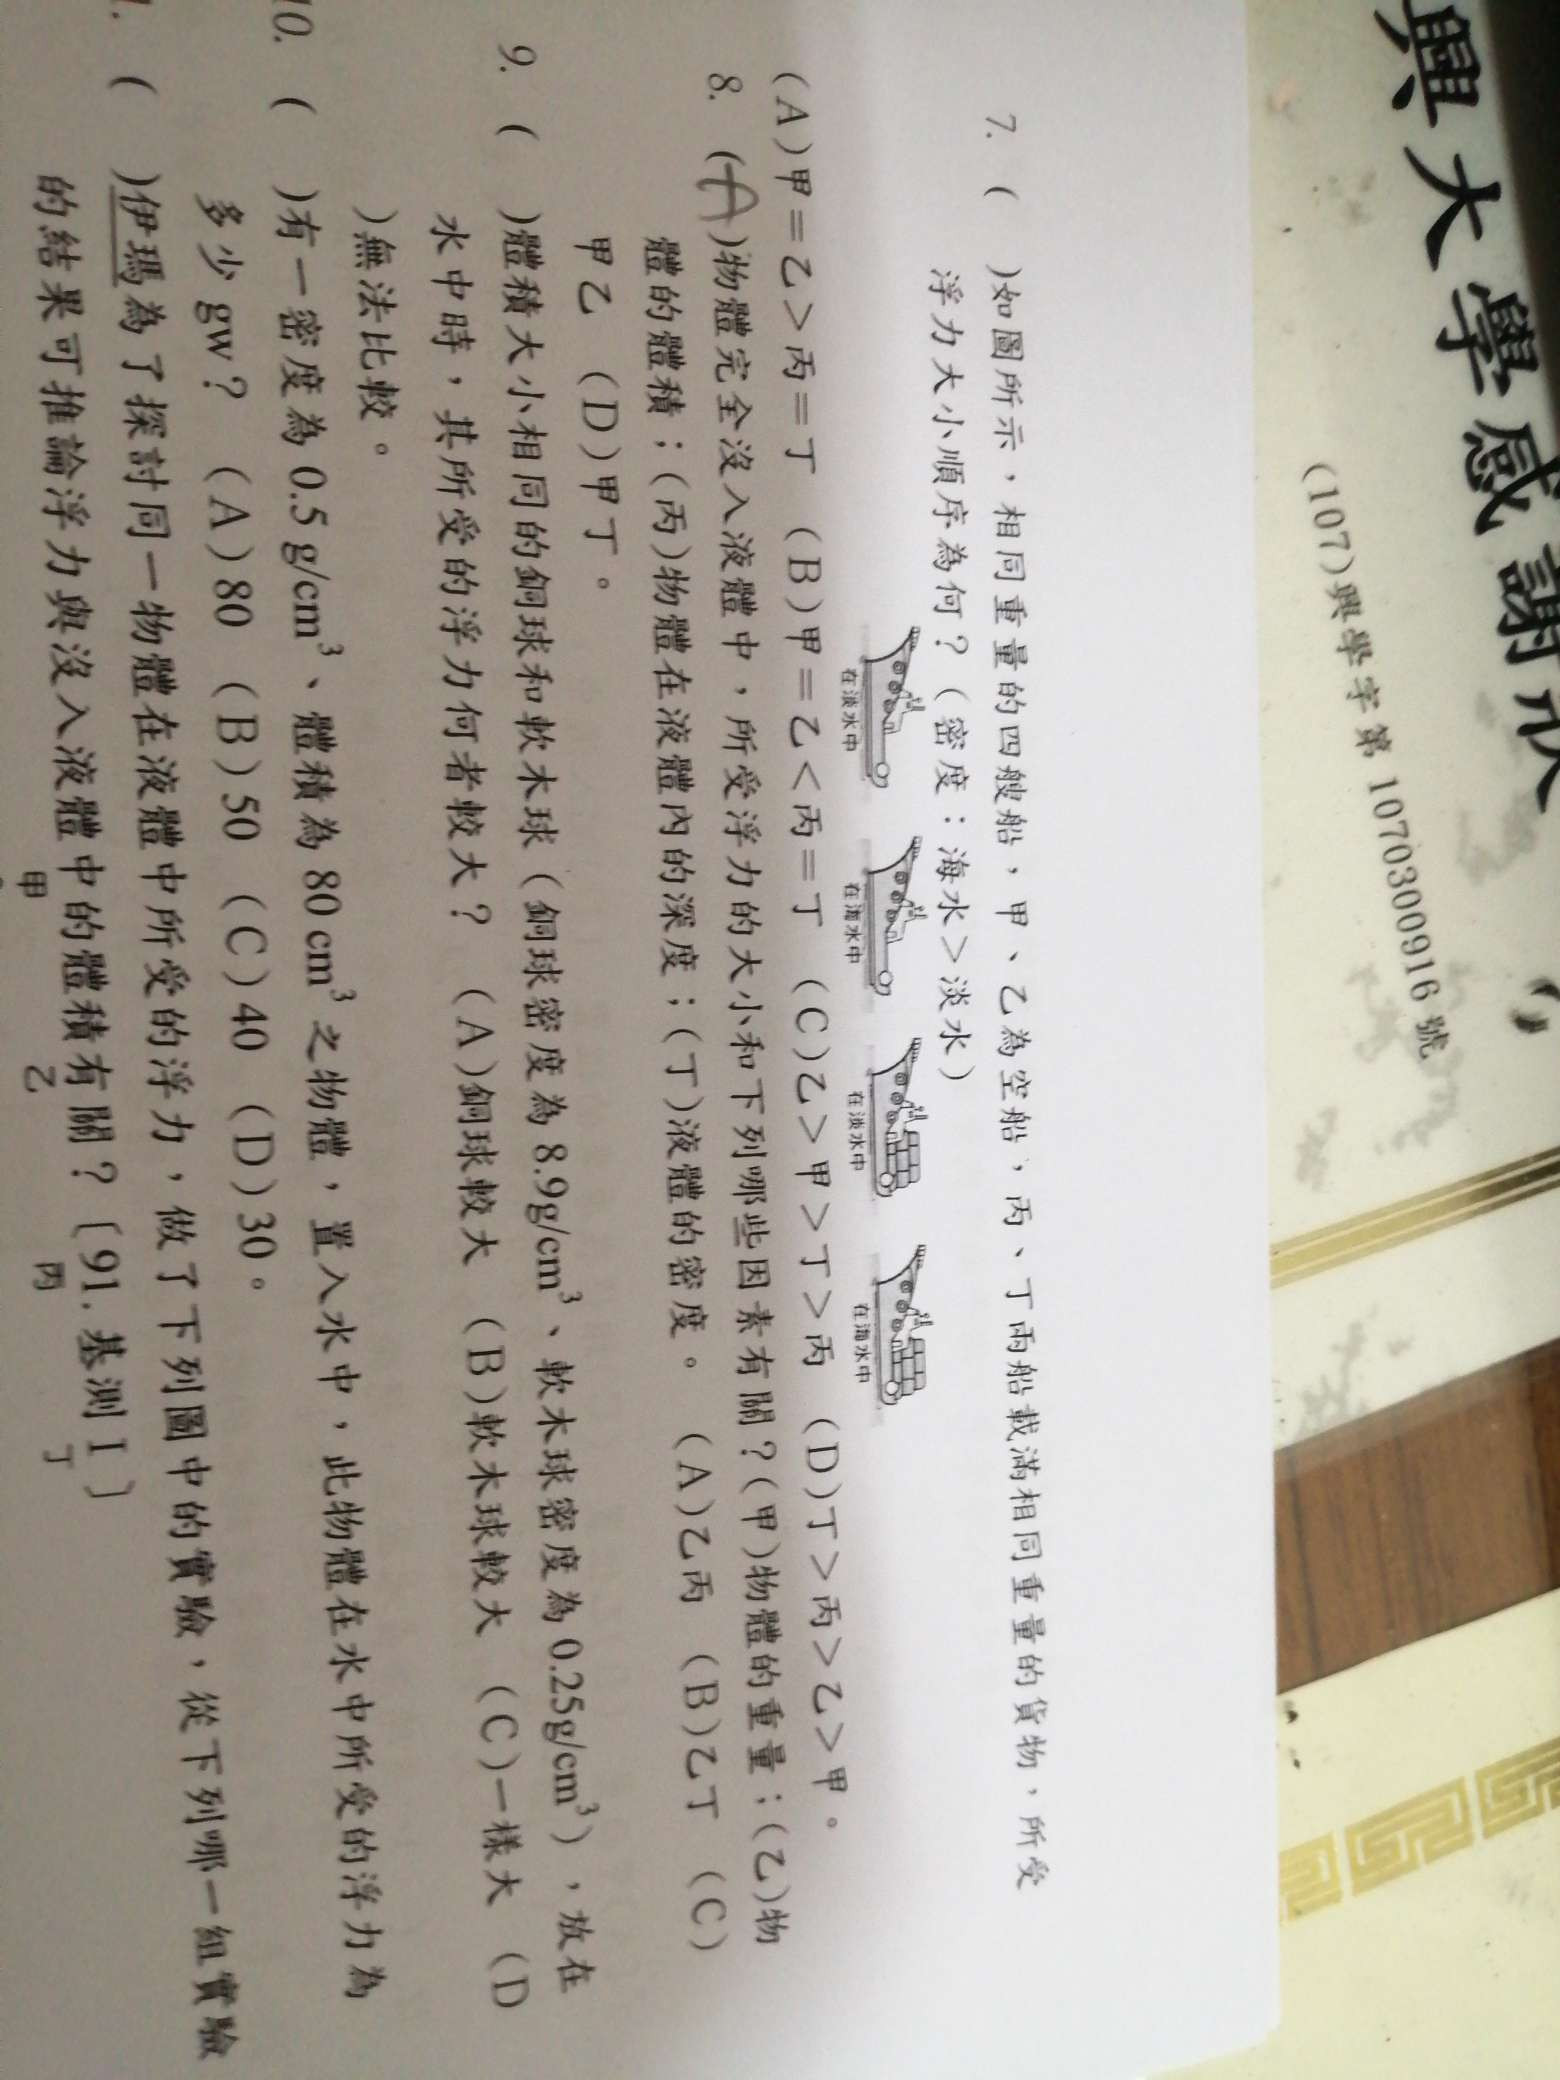 興大學感謝狀
(107)興學字第 1070300916 號
7. (　)如圖所示，相同重量的四艘船，甲、乙為空船，丙、丁兩船載滿相同重量的貨物，所受
浮力大小順序為何？（密度：海水＞淡水）
在淡水中 在海水中 在淡水中 在海水中
(A)甲＝乙＞丙＝丁 (B)甲＝乙＜丙＝丁 (C)乙＞甲＞丁＞丙 (D)丁＞丙＞乙＞甲。
8. (A)物體完全沒入液體中，所受浮力的大小和下列哪些因素有關？(甲)物體的重量；(乙)物
體的體積；(丙)物體在液體內的深度；(丁)液體的密度。 (A)乙丙 (B)乙丁 (C)
甲乙 (D)甲丁。
9. (　)體積大小相同的銅球和軟木球（銅球密度為 8.9g/cm³、軟木球密度為 0.25g/cm³），放在
水中時，其所受的浮力何者較大？ (A)銅球較大 (B)軟木球較大 (C)一樣大 (D
)無法比較。
10. (　)有一密度為 0.5 g/cm³、體積為 80 cm³ 之物體，置入水中，此物體在水中所受的浮力為
多少 gw？ (A)80 (B)50 (C)40 (D)30。
(　)伊瑪為了探討同一物體在液體中所受的浮力，做了下列圖中的實驗，從下列哪一組實驗
的結果可推論浮力與沒入液體中的體積有關？〔91.基測Ⅰ〕
甲 乙 丙 丁